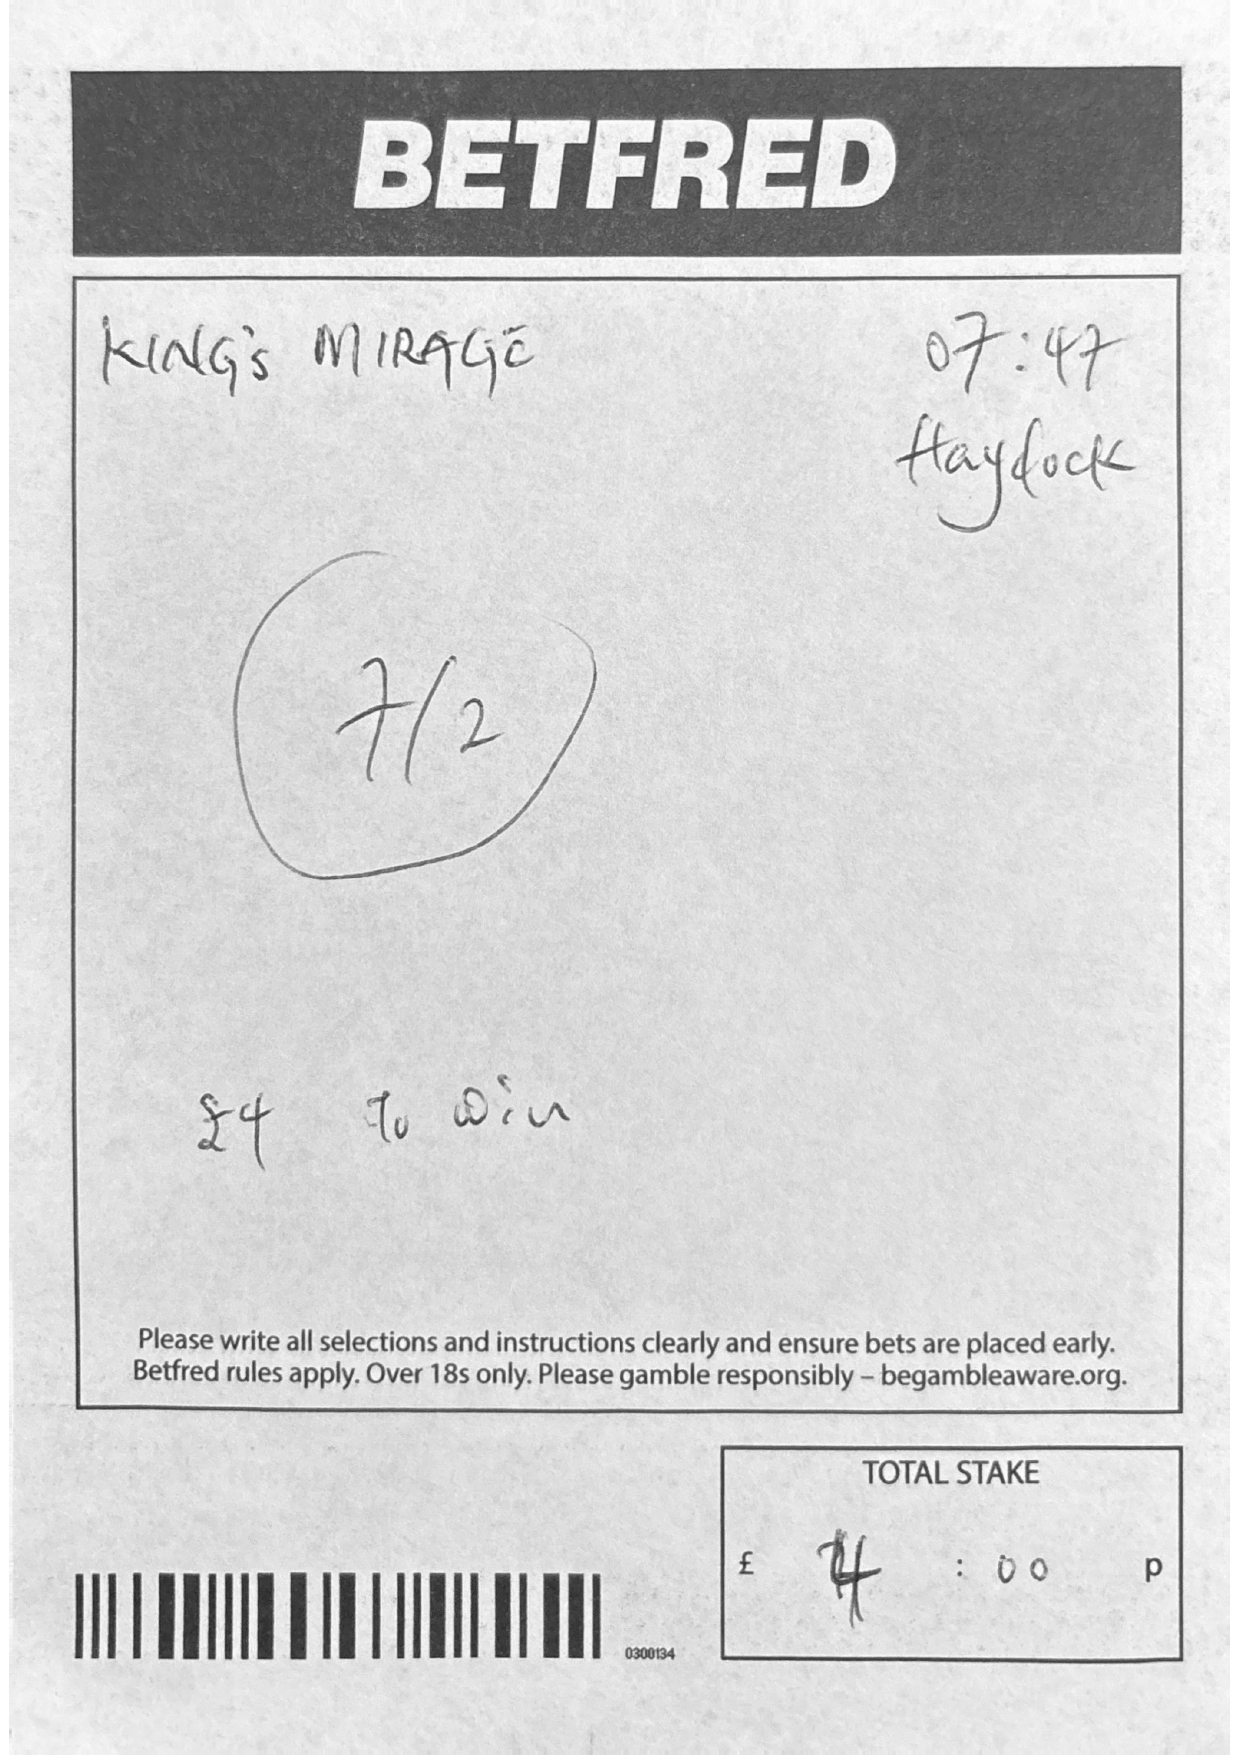 BETFRED
KING'S MIRAGE 07:47
Haydock
7/2
£4 to win
Please write all selections and instructions clearly and ensure bets are placed early.
Betfred rules apply. Over 18s only. Please gamble responsibly – begambleaware.org.
TOTAL STAKE
£ 4 : 00 p
0300134